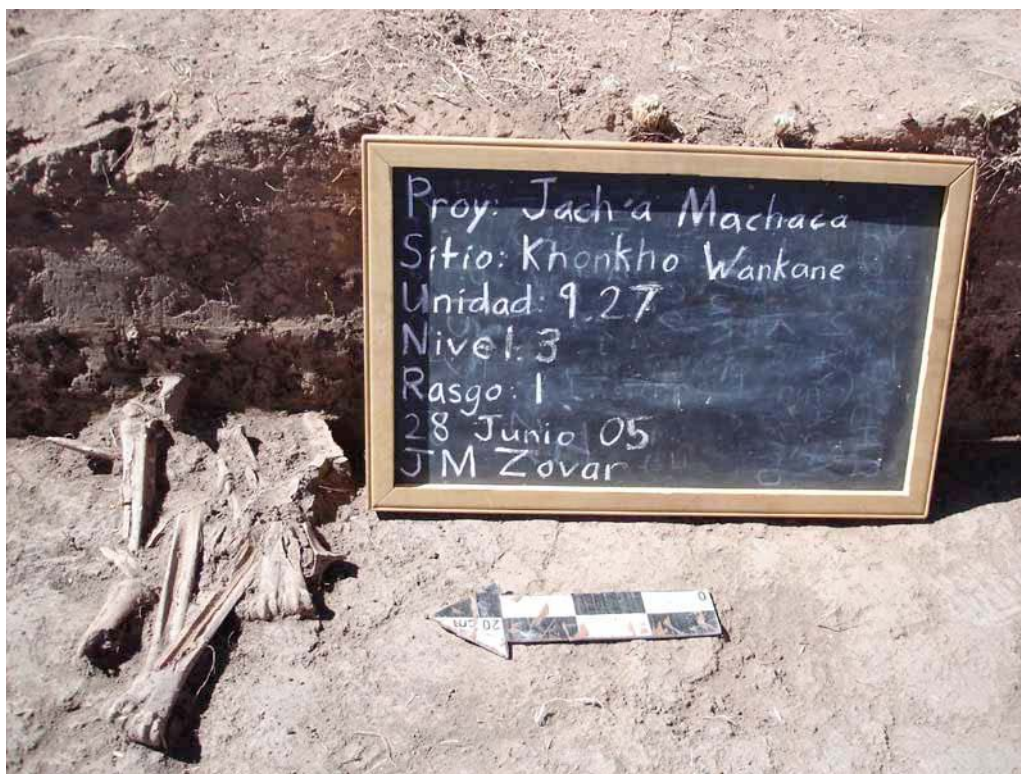 Proy: Jach'a Machaca
Sitio: Khonkho Wankane
Unidad: 9.27
Nivel: 3
Rasgo: 1
28 Junio 05
JM Zovar
0
20 cm